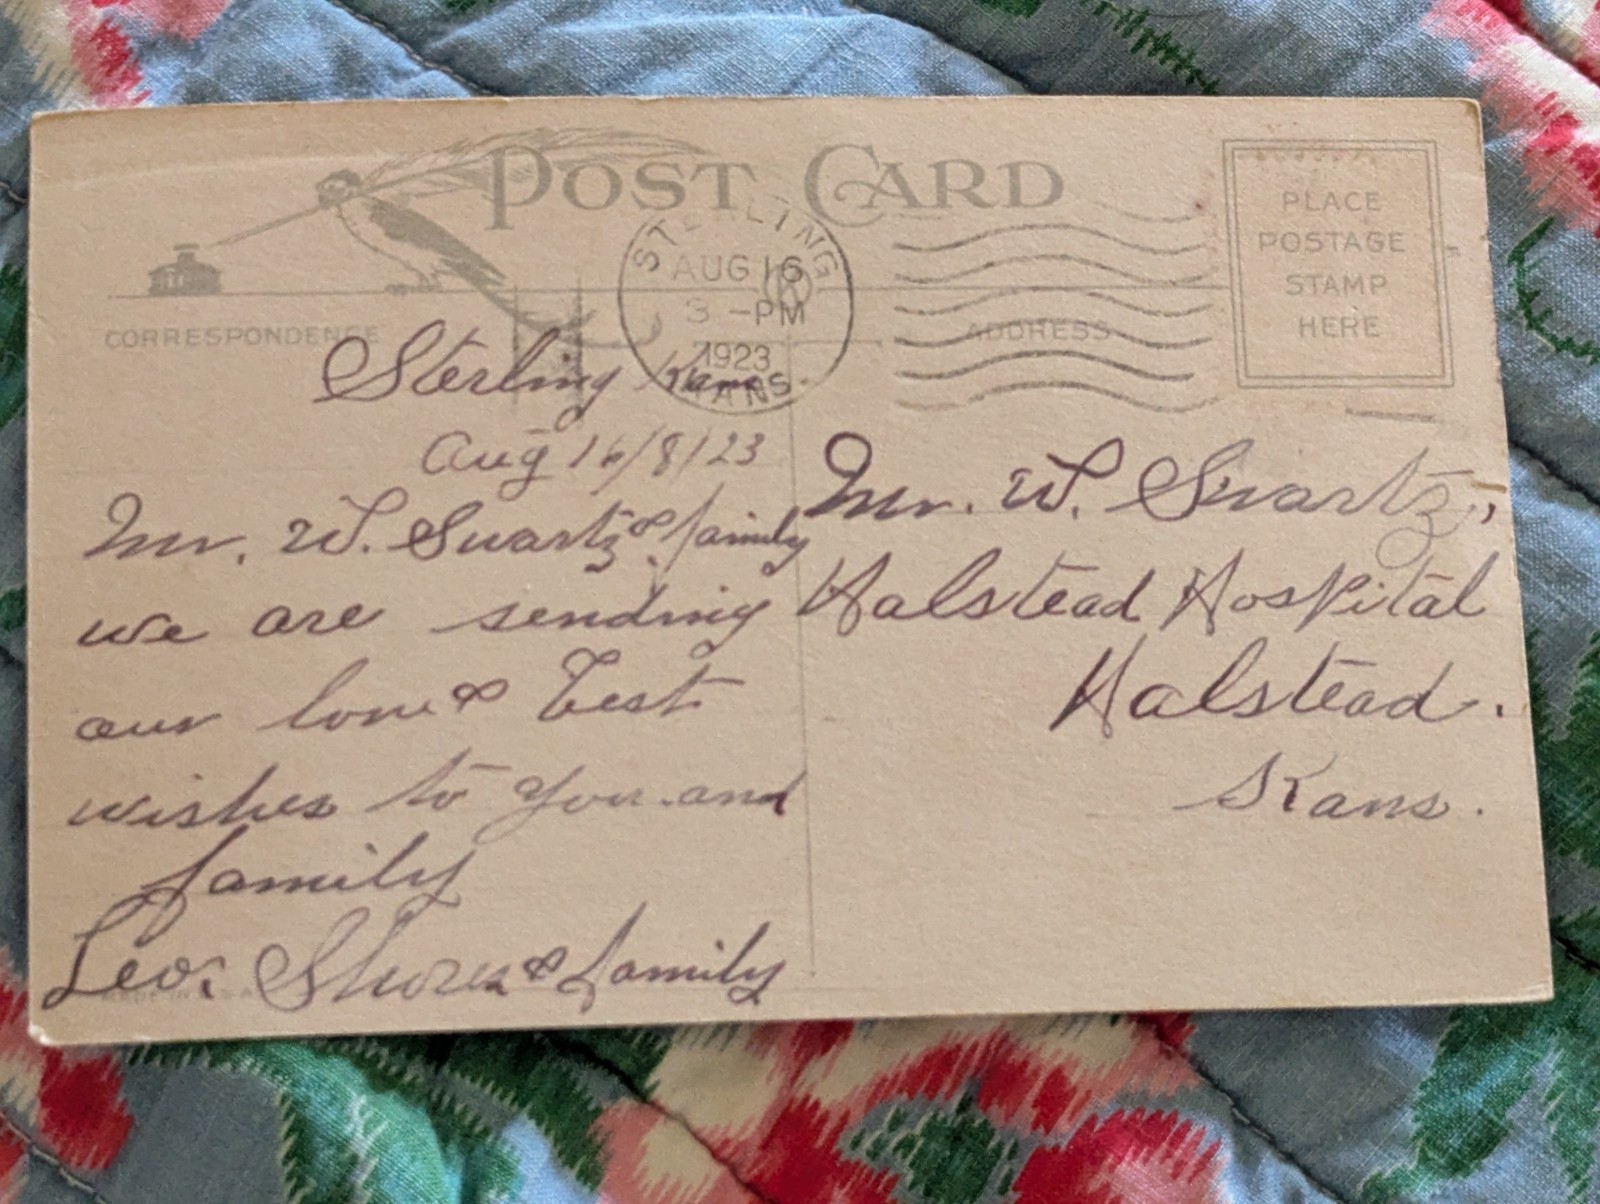 POST CARD
PLACE
POSTAGE
STAMP
HERE
STERLING
AUG 16
3-PM
1923
KANS.
CORRESPONDENCE
ADDRESS
Sterling Kans
Aug 16/8/23
Mr. W. Swartz & family
we are sending
our love & best
wishes to you and
family
Leo. & family
Mr. W. Swartz,
Halstead Hospital
Halstead.
Kans.
MADE IN U.S.A.